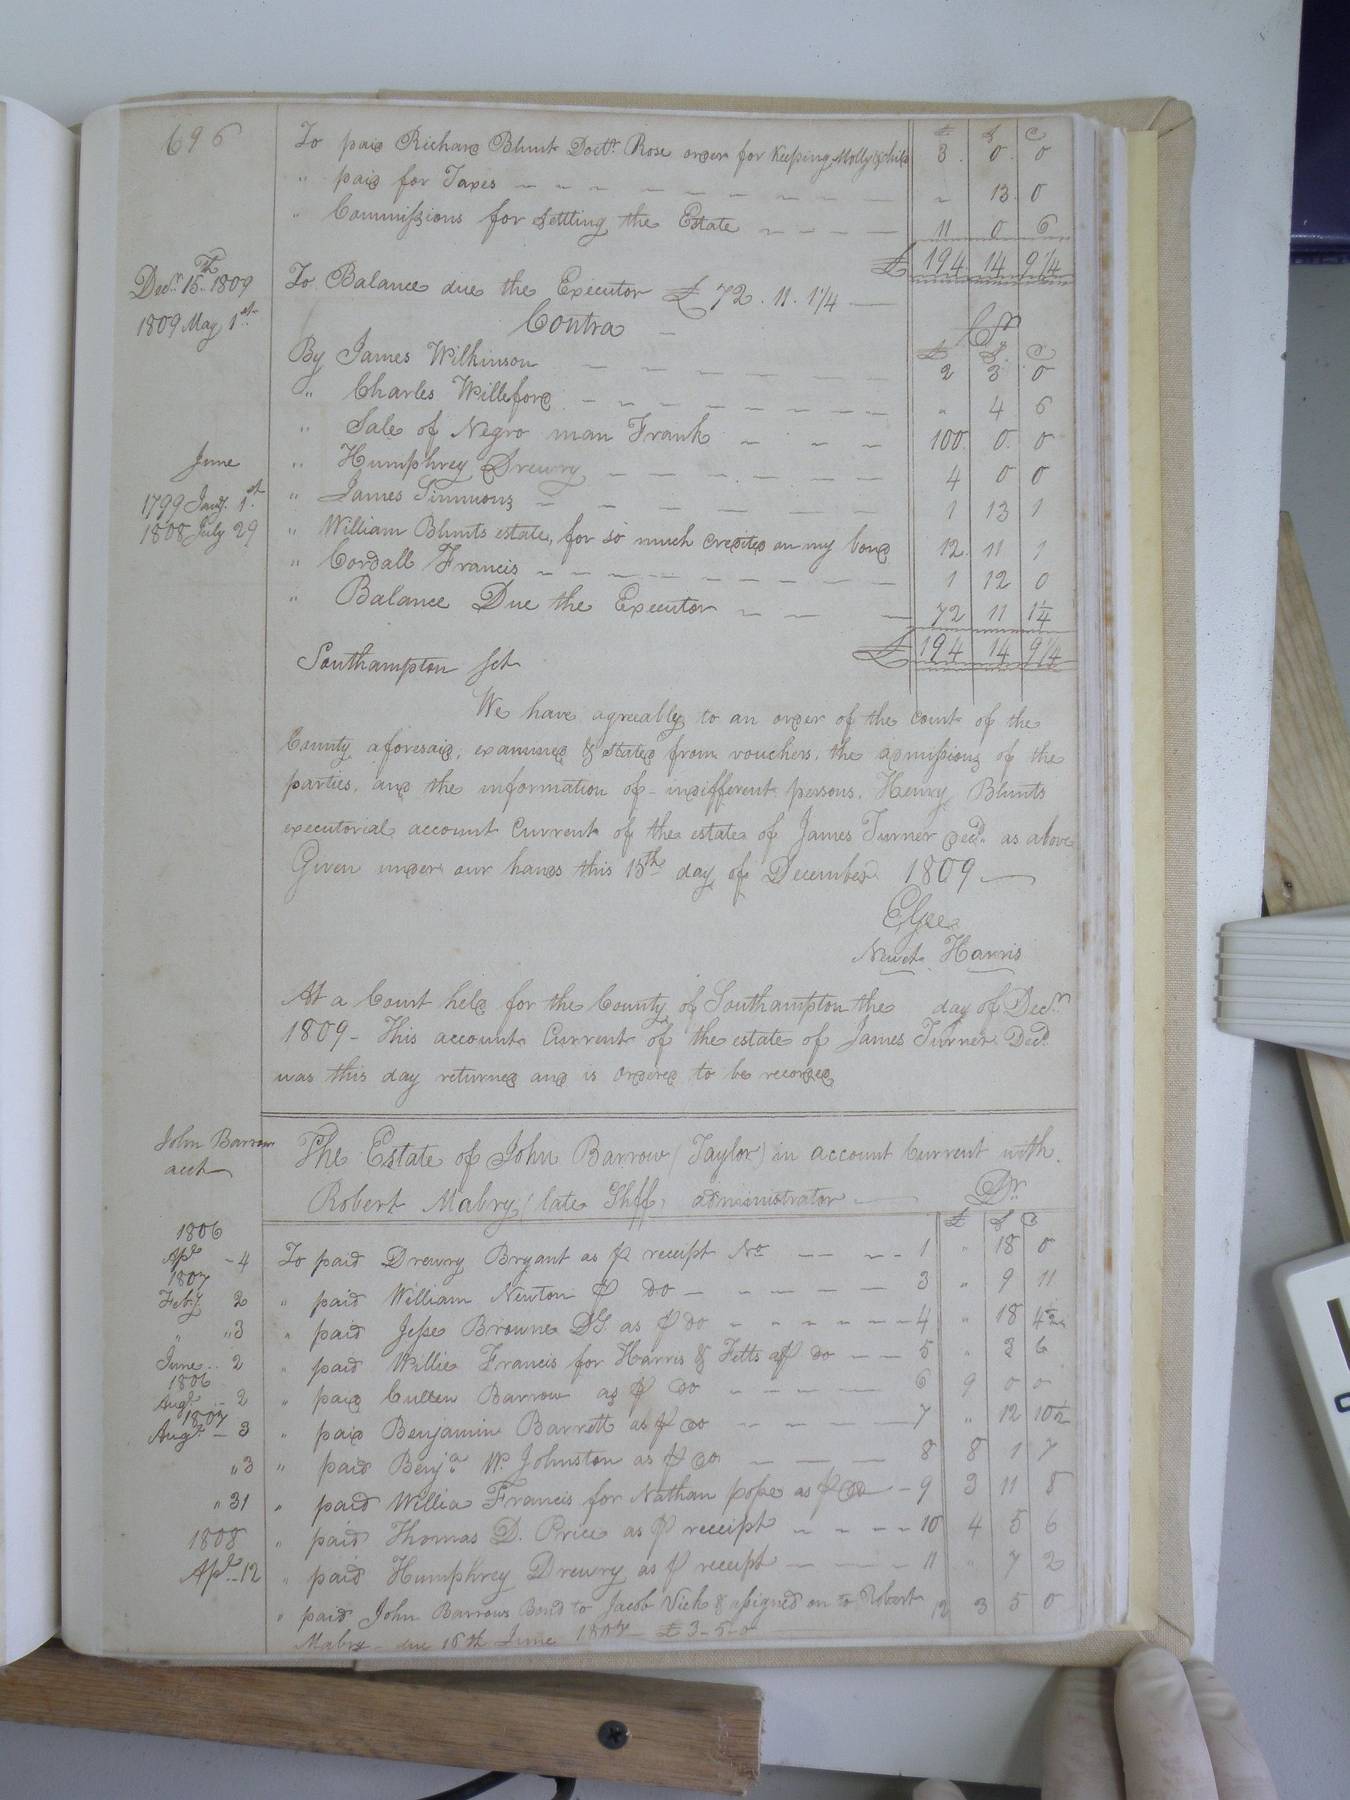 696
£ S D
To paid Richard Blunt Doctr. Rose order for Keeping Molly & child 3 . 0 . 0
" paid for Taxes " 13 . 0
" Commissions for settling the Estate 11 0 6
£ 194 14 9 1/4
Decr. 15th 1809 To Balance due the Executor £ 72 . 11 . 1 1/4
1809 May 1st Contra Cr
£ S. D
By James Wilkinson 2 3 0
" Charles Welleford " 4 6
" Sale of Negro man Frank 100 0 0
June " Humphrey Drewry 4 0 0
1799 Jany. 1st " James Simmons 1 13 1
1808 July 29 " William Blunts estate, for so much credited on my bond 12 11 1
" Cordall Francis 1 12 0
" Balance Due the Executor 72 11 1 1/4
£ 194 14 9 1/4
Southampton Sct
We have agreeably to an order of the court of the
County aforesaid, examined & stated from vouchers, the admissions of the
parties, and the information of indifferent persons, Henry Blunts
executorial account Current of the estate of James Turner decd. as above
Given under our hands this 15th day of December 1809
Newt. Harris
At a Court held for the County of Southampton the day of Decr.
1809 - This account Current of the estate of James Turner Decd.
was this day returned and is ordered to be recorded
John Barrow acct
The Estate of John Barrow (Taylor) in account Current with
Robert Mabry (late Shff) administrator Dr
£ S D
1806 Apl. - 4 To paid Drewry Bryant as pr receipt No 1 " 18 0
1807 Feby. 2 " paid William Newton pr do 3 " 9 11
" "3 " paid Jesse Browne DS as pr do 4 " 18 4 1/2
June .. 2 " paid Willie Francis for Harris & Fitts as pr do 5 " 3 6
1806 Augt. - 2 " paid Cullen Barrow as pr do 6 9 0 0
1807 Augt. - 3 " paid Benjamin Barrett as pr do 7 " 12 10 1/2
"3 " paid Benja. W. Johnston as pr do 8 8 1 7
" 31 " paid Willia Francis for Nathan pope as pr do - 9 3 11 8
1808 " paid Thomas D. Price as pr receipt 10 4 5 6
Apl. - 12 " paid Humphrey Drewry as pr receipt 11 " 7 2
" paid John Barrows Bond to Jacob Vick & assigned on to Robert 12 3 5 0
Mabry - due 16th June 1807 - £ 3 - 5 - 0